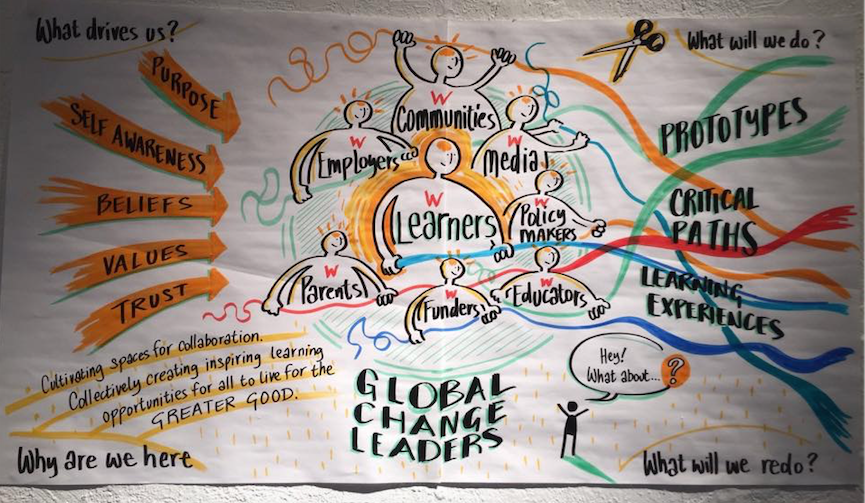 What drives us?
PURPOSE
SELF AWARENESS
BELIEFS
VALUES
TRUST
Cultivating spaces for collaboration.
Collectively creating inspiring learning
opportunities for all to live for the
GREATER GOOD.
Why are we here
W
Communities
W
Employers
W
Media
W
Learners
W
Policy
MAKERS
W
Parents
W
Funders
W
Educators
GLOBAL
CHANGE
LEADERS
What will we do?
PROTOTYPES
CRITICAL
PATHS
LEARNING
EXPERIENCES
Hey!
What about...?
What will we redo?